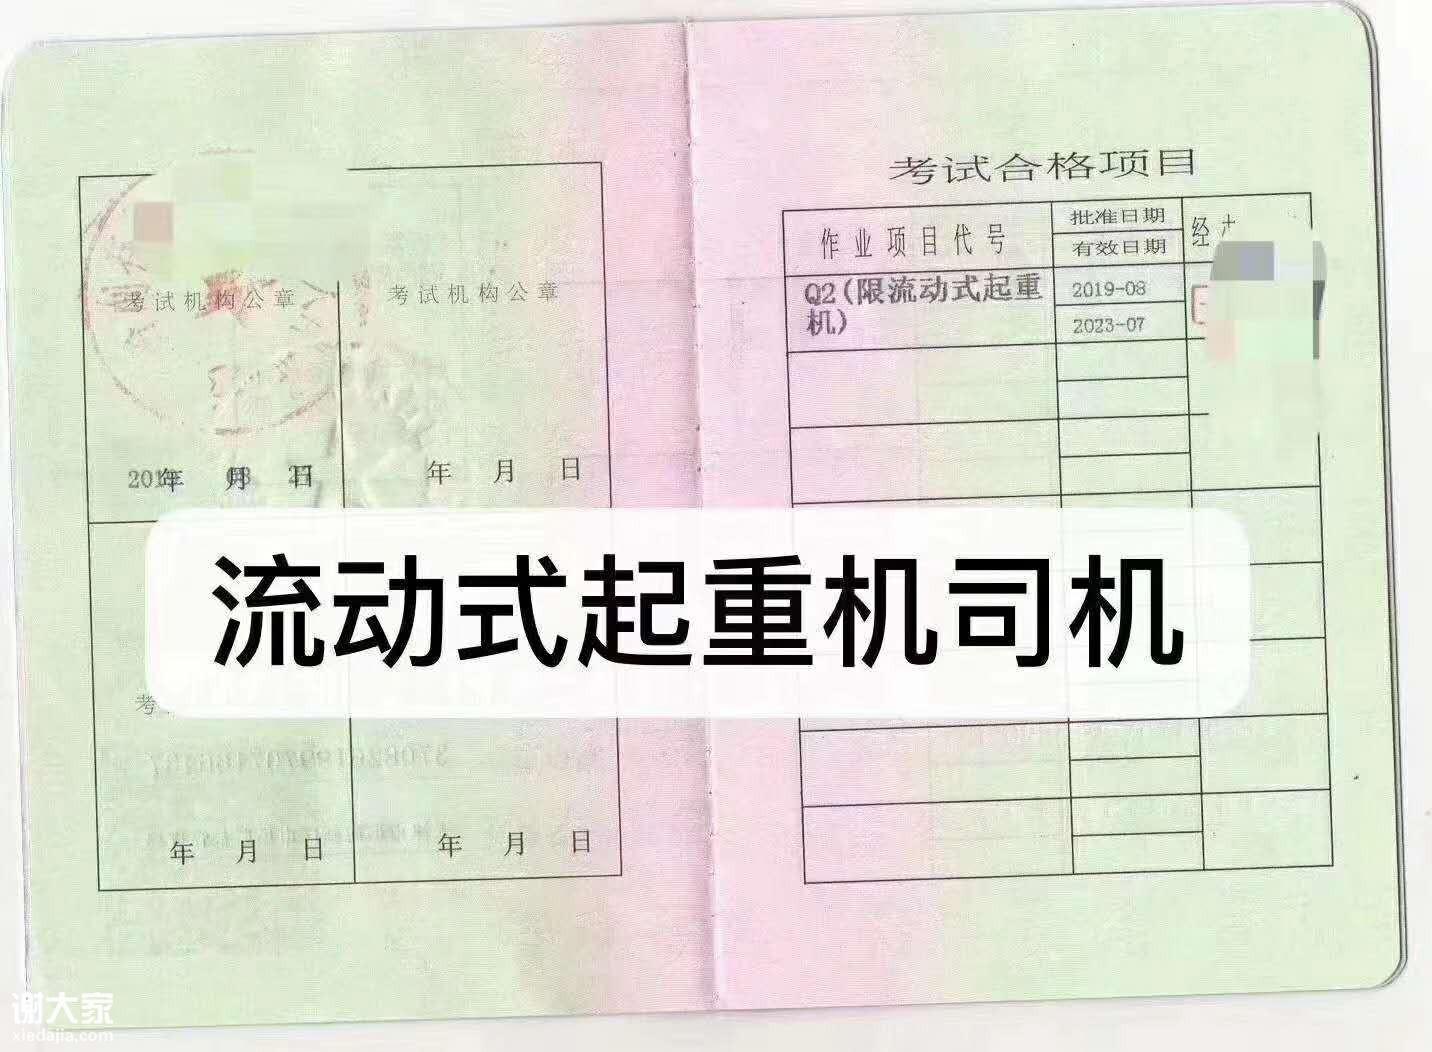 考试机构公章
考试机构公章
年 月 日
年 月 日
考
年 月 日
年 月 日
考试合格项目
作业项目代号
批准日期
有效日期
经
Q2(限流动式起重
机)
2019-08
2023-07
流动式起重机司机
谢大家
xiedajia.com